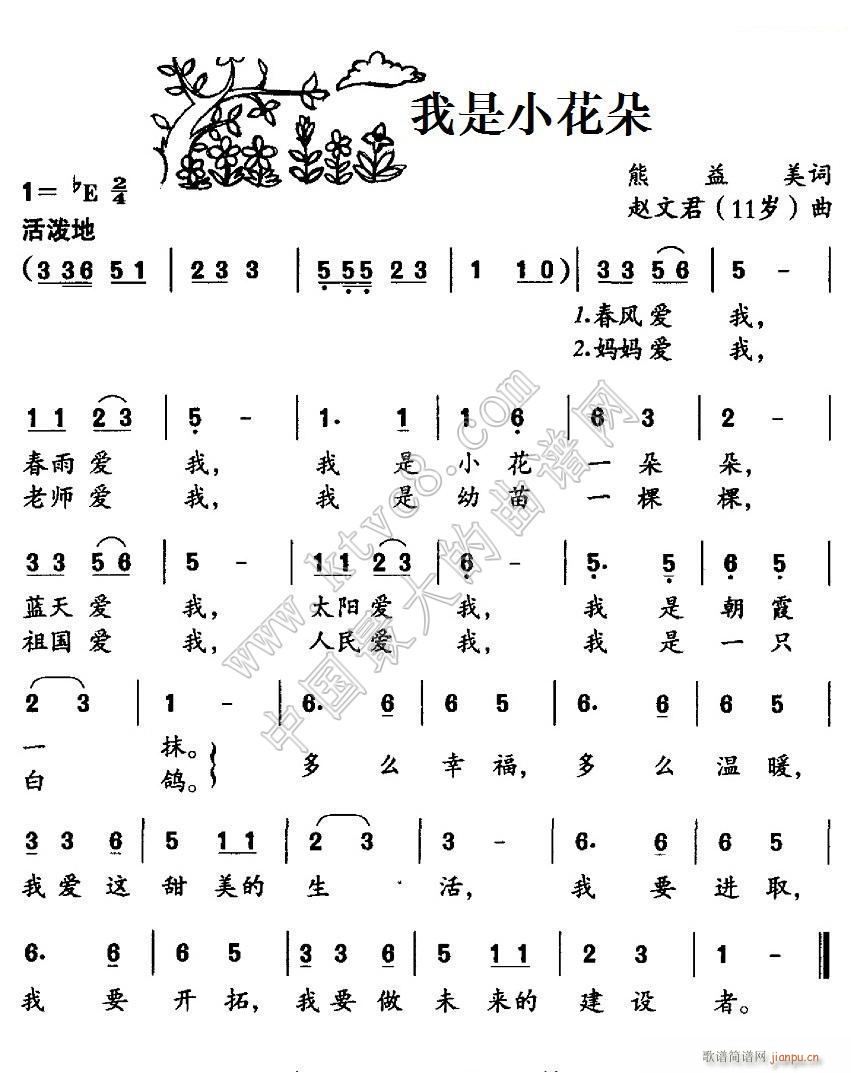 我是小花朵
熊益美词
赵文君(11岁)曲
1=♭E 2/4
活泼地
(3 36 51 | 23 3 | 5 55 23 | 1 10) | 33 56 | 5 - |
1.春风爱 我,
2.妈妈爱 我,
11 23 | 5 - | 1. 1 | 1 6 | 6 3 | 2 - |
春雨爱 我, 我 是 小 花 一 朵 朵,
老师爱 我, 我 是 幼 苗 一 棵 棵,
33 56 | 5 - | 11 23 | 6 - | 5. 5 | 6 5 |
蓝天爱 我, 太阳爱 我, 我 是 朝 霞
祖国爱 我, 人民爱 我, 我 是 一 只
2 3 | 1 - | 6. 6 | 6 5 | 6. 6 | 6 5 |
一 抹。 多 么 幸 福, 多 么 温 暖,
白 鸽。
3 3 6 | 5 11 | 2 3 | 3 - | 6. 6 | 6 5 |
我 爱 这 甜 美的 生 活, 我 要 进 取,
6. 6 | 6 5 | 3 3 6 | 5 11 | 2 3 | 1 - ‖
我 要 开 拓, 我 要 做 未 来的 建 设 者。
www.ktvc8.com
中国最大的曲谱网
歌谱简谱网
jianpu.cn